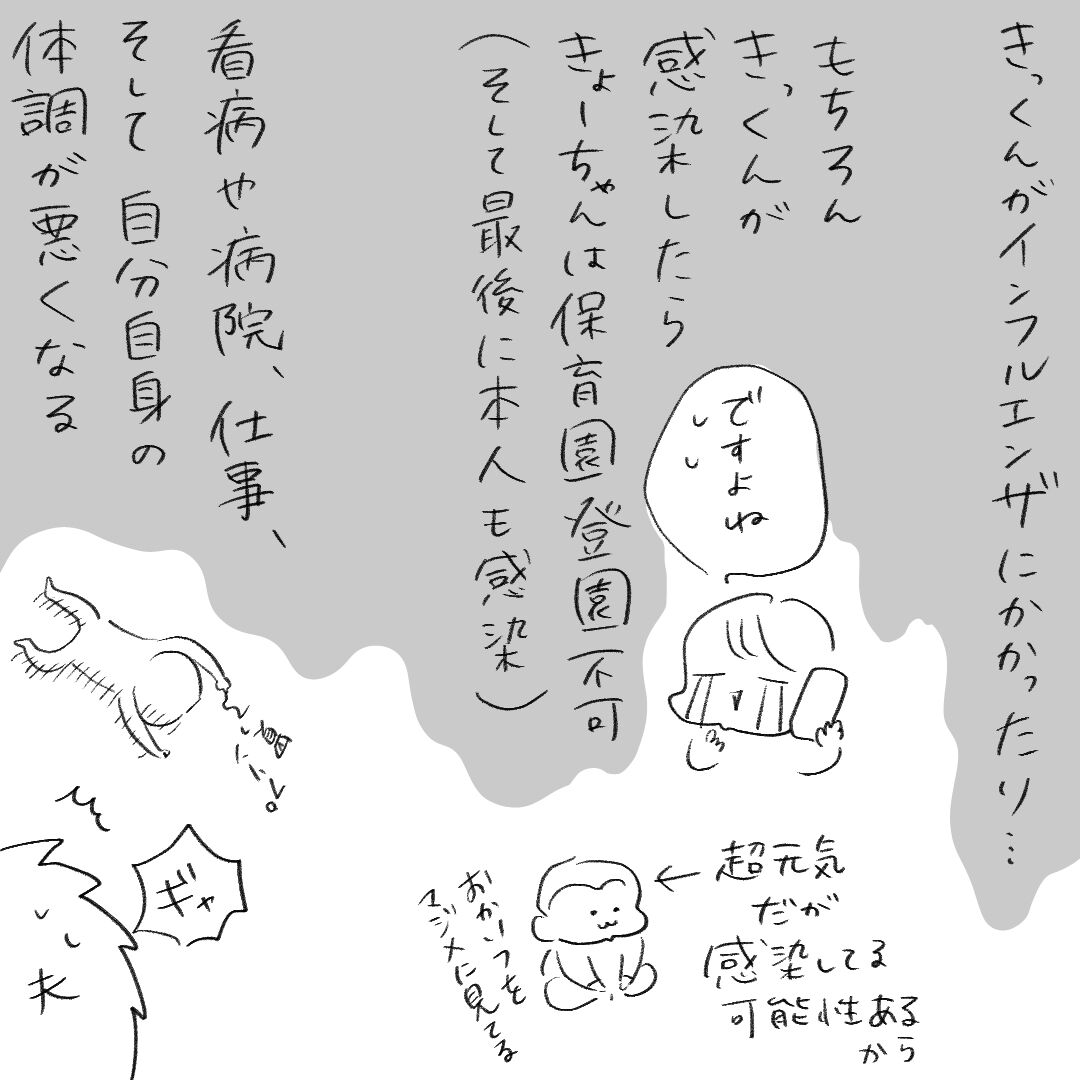 きっくんがインフルエンザにかかったり…
もちろん
きっくんが
感染したら
きょーちゃんは保育園登園不可
（そして最後に本人も感染）
ですよね
看病や病院、仕事、
そして自分自身の
体調が悪くなる
超元気
だが
感染してる
可能性ある
から
おかいつを
マジメに見てる
ギャ